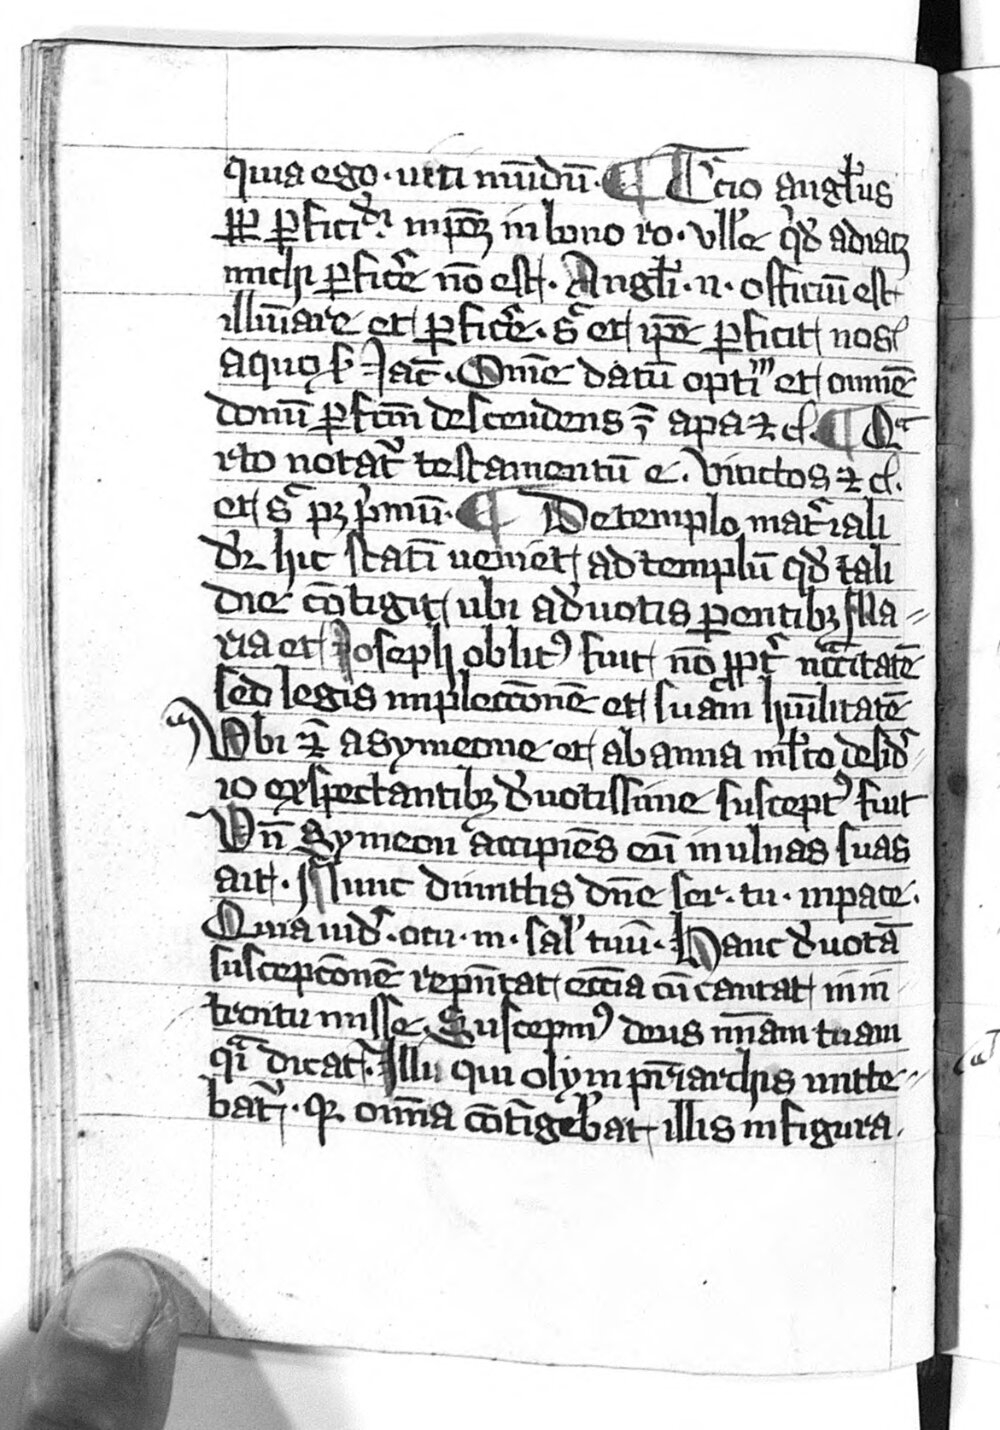 quia ego · uici mu̅du̅ · ¶ T͛cio angl̛us
ꝑficit
michi ꝑfic̛e no̅ est · Angl̛i · n · officiu̅ est
illu̅iare et ꝑfic̛e · sᷓ et ip̅e ꝑficit nos
a quo Jac̅ · Om̅e datu̅ opti᷒ et omne̅
donu̅ ꝑf̅c̅m descendens apa ⁊ cͥ · ¶ Qᷓ
rto notat᷑ testamentu̅ e · vinctos ⁊ cͥ ·
et sᷓ pꝫ p͛mu̅ · ¶ De templo mat͛iali
dꝛ hic stati̅ ueniet ad templu̅ qd̅ tali
die co̅tigit ubi a deuotis parentibꝫ Ma〃
ria et Joseph oblitꝰ fuit no̅ ꝓpt͛ nc̅c̅itate̅
sed legis implecco̅ne̅ et suam hu̅ilitate̅
Vbi a symeone et ab anna ml̛to desid͛〃
io exspectantibꝫ d̛uotissime susceptꝰ fuit
Vn̅ Symeon accipie̅s eu̅ in ulnas suas
ait · Nunc dimittis dn̅e ser · tu · in pace ·
Quia uid͛ · ocu · m · sal̛ tuu̅ · Hanc d̛uota̅
suscepco̅ne̅ rep̅n̅tat ecc̅ia cu̅ cantat in in
troitu misse Suscepimꝰ deus mi̅am tuam
qᷓ dicat᷑ · Illu̅ qui olym pr̅iarchis mitte〃
bat᷑ · ꝙ om̅ia co̅ti̅geba̅t illis in figura ·